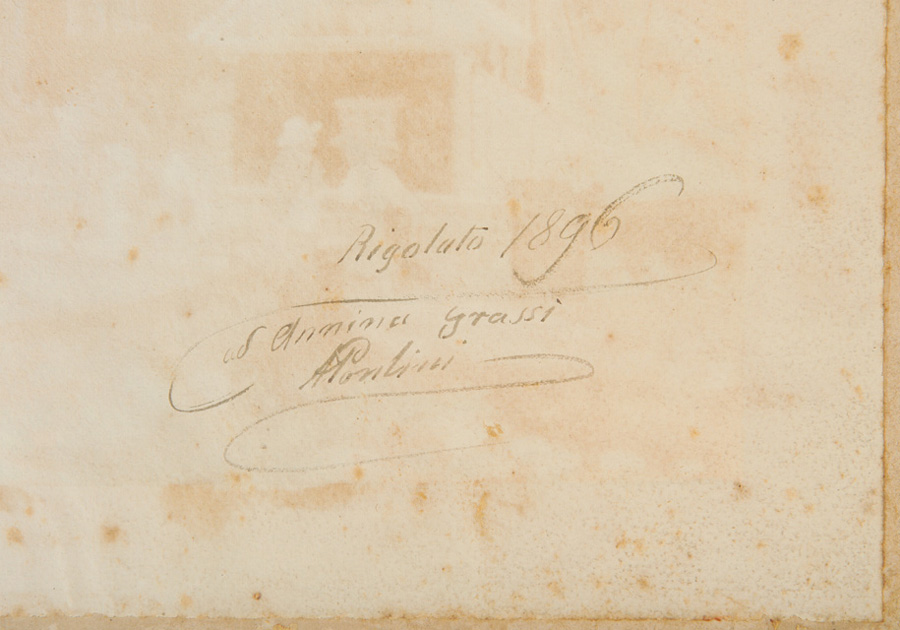 Rigolato 1896
ad Annina Grassi
APontini